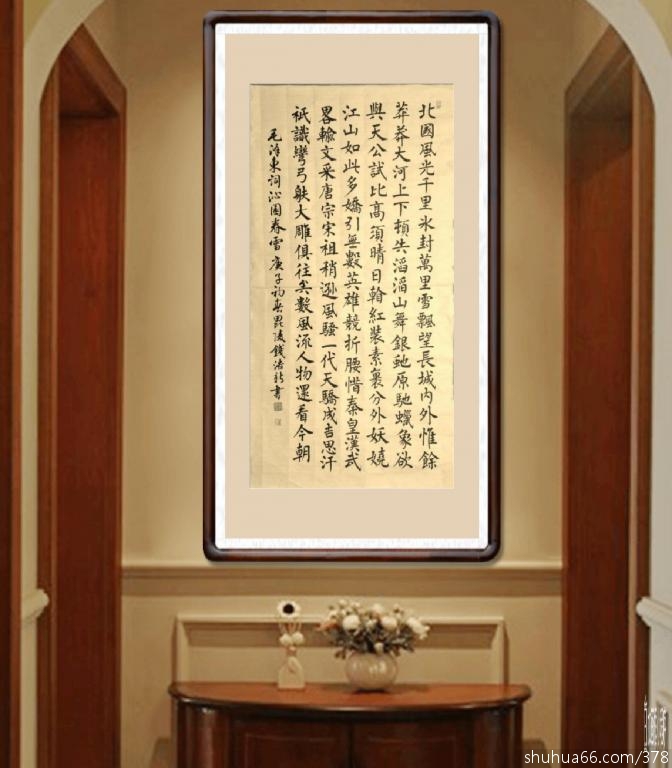 北國風光千里氷封萬里雪飄望長城内外惟餘
莽莽大河上下頓失滔滔山舞銀虵原馳蠟象欲
與天公試比髙須晴日㸔紅裝素裹分外妖嬈
江山如此多嬌引無數英雄競折腰惜秦皇漢武
畧輸文采唐宗宋祖稍遜風騷一代天驕成吉思汗
祇識彎弓䠶大雕俱往矣數風流人物還看今朝
毛澤東詞沁園春雪 庚子初春毘陵錢浩新書
shuhua66.com/378